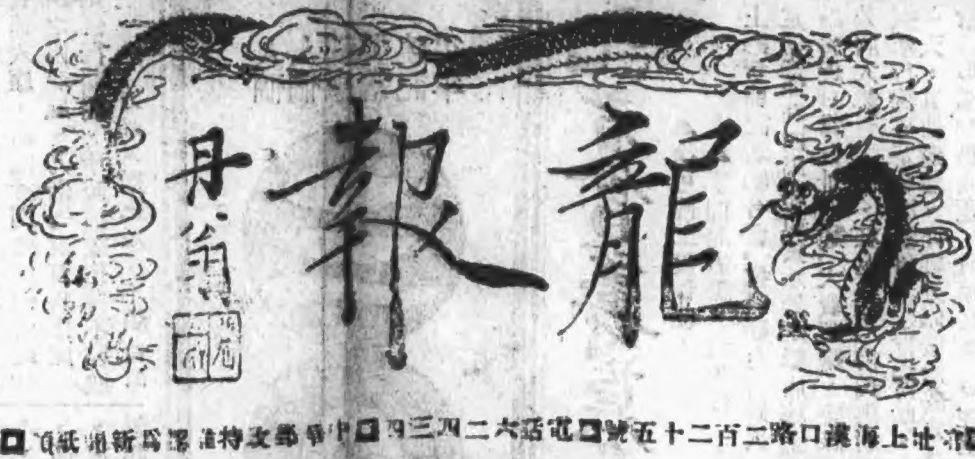 龍報
丹翁
址上海漢口路二百二十五號 電話六二四三四 中華郵政特准認爲新聞紙類